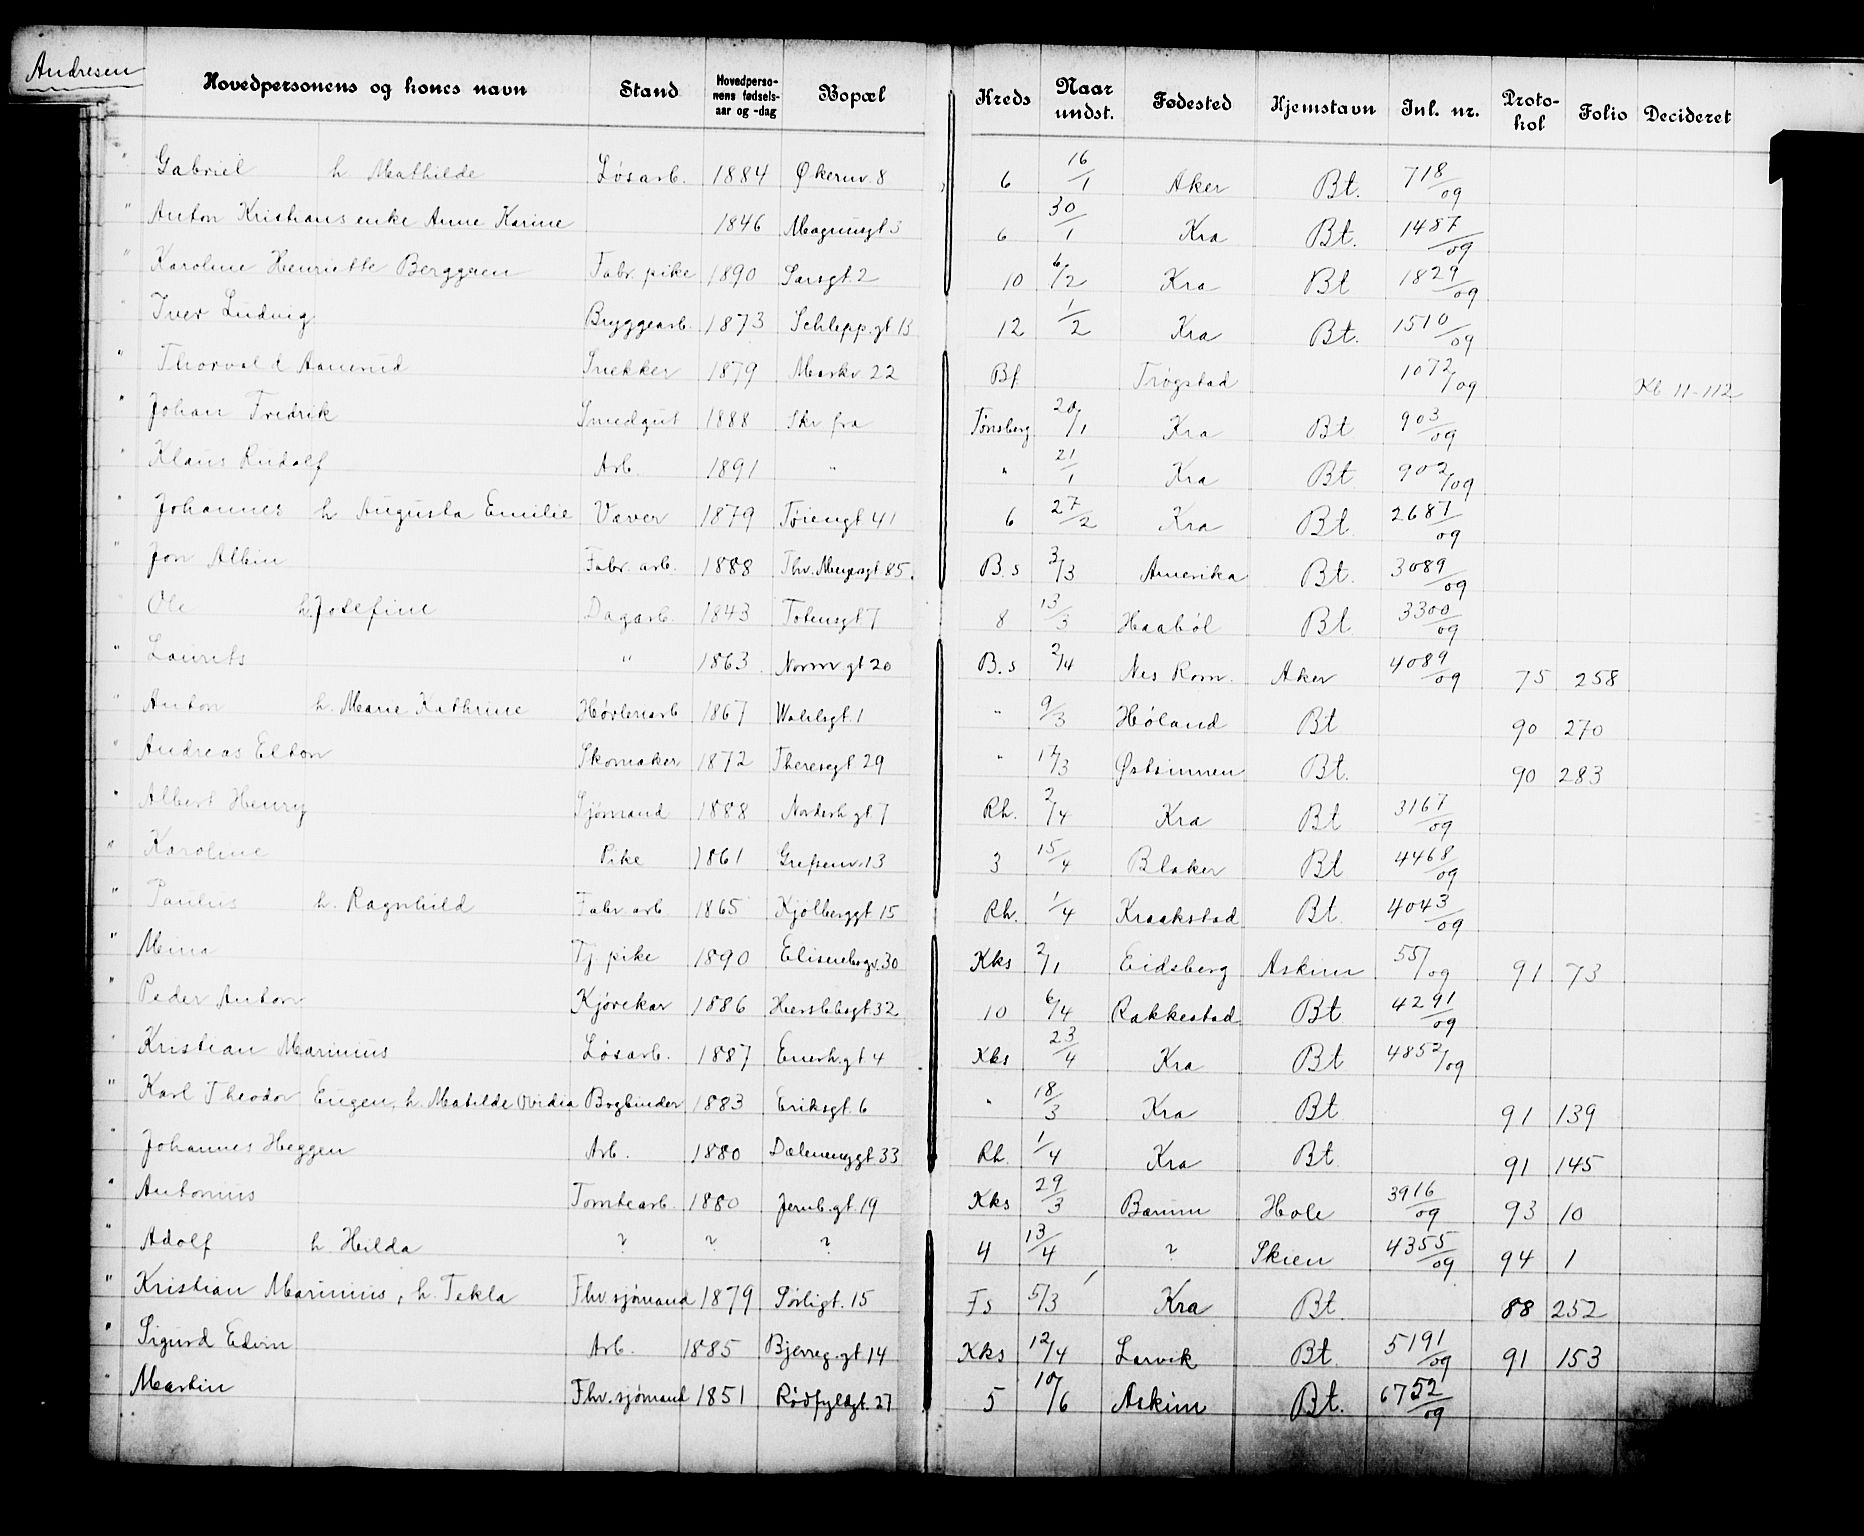 Andresen
Hovedpersonens og kones navn Stand Hovedperso-nens fødsels-aar og -dag Bopæl Kreds Naar undst. Fødested Hjemstavn Inl. nr. Proto-kol Folio Decideret
" Gabriel h Mathilde Løsarb. 1884 Økernv. 8 6 16/1 Aker Bt. 718/09
" Anton Kristians enke Anne Karine 1846 Magnusgt 3 6 30/1 Kra Bt. 1487/09
" Karoline Henriette Berggren Fabr. pike 1890 Sarsgt. 2 10 6/2 Kra Bt 1829/09
" Iver Ludvig Bryggearb. 1873 Schlepp.gt 13 12 1/2 Kra Bt. 1510/09
" Thorvald Aamrud Snekker 1879 Markv 22 Bf Trøgstad 1072/09 Kb 11-112
" Johan Fredrik Smedgut 1888 Skr fra Tønsberg 20/1 Kra Bt 903/09
" Klaus Rudolf Arb. 1891 " " 21/1 Kra Bt 902/09
" Johannes h Augusta Emilie Væver 1879 Tøiengt 41 6 27/2 Kra Bt. 2687/09
" Jon Albin Fabr. arb. 1888 Thv. Meyersgt 85. B.s 3/3 Amerika Bt. 3089/09
Ole h. Josefine Dagarb. 1843 Totensgt 7 8 13/3 Haabøl Bt 3300/09
" Laurits " 1863 Norm.gt 20 B.s 2/4 Nes Rom. Aker 4089/09 75 258
" Anton h. Marie Kathrine Høvleriarb 1867 Wahlsgt. 1 " 9/3 Høland Bt 90 270
" Andreas Elton Skomaker 1872 Theresegt 29 " 17/3 Østsinnen Bt. 90 283
" Albert Henry Sjømand 1888 Norderh.gt 7 Rh. 2/4 Kra Bt 3167/09
" Karoline Pike 1861 Grefsenv. 13 3 15/4 Blaker Bt 4468/09
" Paulus h. Ragnhild Fabr arb 1865 Kjølberggt 15 Rh. 1/4 Kraakstad Bt. 4043/09
" Mina Tj. pike 1890 Elisenbergv. 30 Kks 2/1 Eidsberg Askim 55/09 91 73
" Peder Anton Kjørekar 1886 Herslebsgt 32 10 6/4 Rakkestad Bt 4291/09
" Kristian Marinius Løsarb. 1887 Enerh.gt 4 Kks 23/4 Kra Bt 4852/09
" Karl Theodor Eugen, h. Matilde Ovidia Bogbinder 1883 Eriksgt. 6 " 18/3 Kra Bt 91 139
" Johannes Heggen Arb. 1880 Dælenenggt 33 Rh. 1/4 Kra Bt. 91 145
" Antonius Tomtearb. 1880 Jernb.gt. 19 Kks 29/3 Bærum Hole 3916/09 93 10
" Adolf h Hilda ? ? ? 4 13/4 ? Skien 4355/09 94 1
" Kristian Marinius, h. Tekla Fhv. sjømand 1879 Sørligt. 15 Fs 5/3 Kra Bt. 88 252
" Sigurd Edvin Arb. 1885 Bjerreg.gt 14 Kks 12/4 Larvik Bt 5191/09 91 153
" Martin Fhv. sjømand 1851 Rødfyldgt. 27 5 10/6 Askim Bt. 6752/09